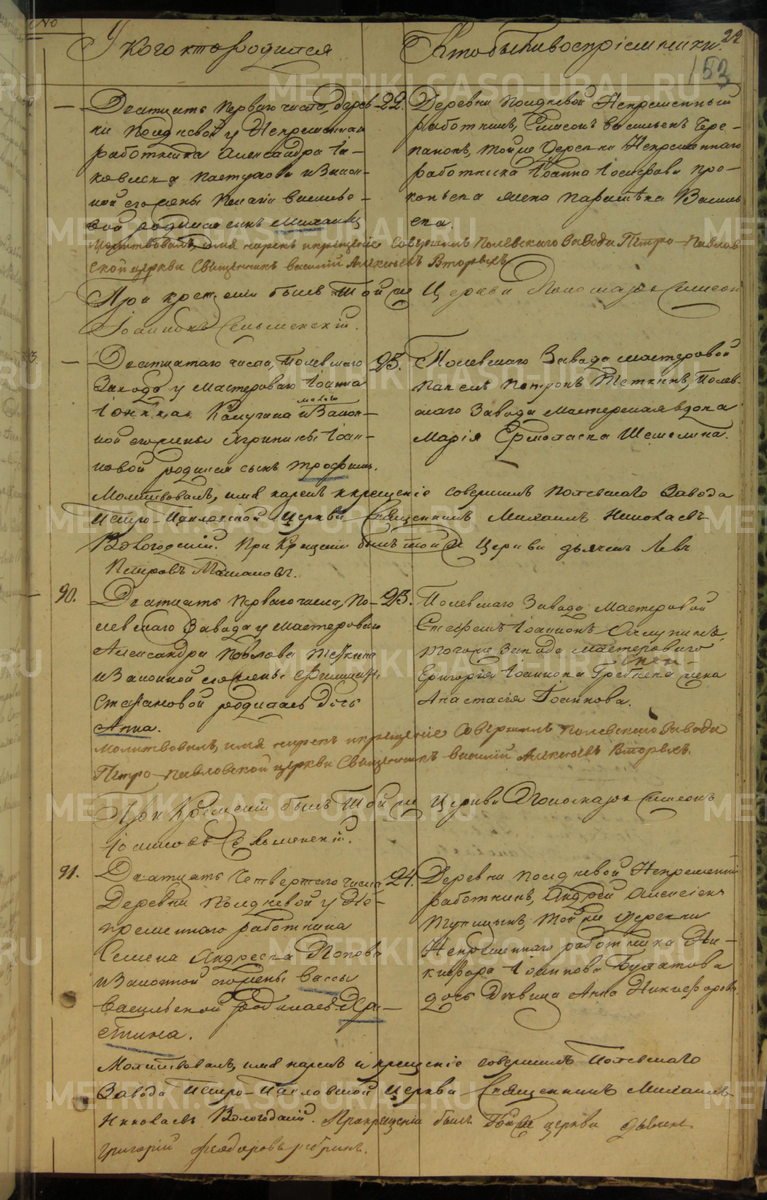 №
У кого кто родился
Кто были восприемники.
22
153
— Двадцать перваго числа, дерев- 22.
ни Полдневой у Непременнаго
работника Александра Іа-
ковлева Пастухова и закон-
ной его жены Пелагіи Василье-
вой родился сынъ Михаилъ
Деревни Полдневой Непременный
работникъ, Симеонъ Васильевъ Чере-
пановъ, той же деревни Непременнаго
работника Іоанна Іосифова Про-
копьева жена Параскева Василь
ева.
Молитвовалъ, имя нарекъ и крещеніе совершилъ Полевскаго завода Петро-Павлов
ской церкви Священникъ Василій Алексѣевъ Вторыхъ
При крещеніи былъ той же Церкви Пономарь Симеонъ
Іоанновъ Сельменскій.
3. — Двадцатаго числа, Полевскаго 23.
Завода у мастероваго Іоанна
Калугина и закон-
ной его жены Агрипины Іоан-
новой родился сынъ Трофимъ.
Полевскаго Завода мастеровой
Павелъ Петровъ Теткинъ, Полев-
скаго Завода мастерская вдова
Марія Ермолаева Шешелина.
Молитвовалъ, имя нарекъ и крещеніе совершилъ Полевскаго Завода
Петро-Павловской Церкви Священникъ Михаилъ Николаевъ
Вологодскій. При крещеніи былъ той же Церкви дьячекъ Левъ
Петровъ
90. Двадцать перваго числа, По- 23.
левскаго Завода у мастероваго
Александра Павлова
и законной его жены
Стефановой родилась дочь
Анна.
Полевскаго Завода Мастеровой
Стефанъ Іоанновъ
Тогоже Завода мастероваго
Григорія Іоаннова жена
Анастасія Іоаннова.
Молитвовалъ, имя нарекъ и крещеніе совершилъ Полевскаго Завода
Петро-Павловской церкви Священникъ Василій Алексѣевъ Вторыхъ.
При крещеніи былъ той же Церкви Пономарь Симеонъ
Іоанновъ Сельменскій.
91. Двадцать четвертаго числа 24.
Деревни Полдневой у Не-
пременнаго работника
Семена Андреева Попова
и законной его жены Вассы
Васильевой родилась Хри-
стина.
Деревни Полдневой Непременный
работникъ, Андрей Алексѣевъ
той же деревни
Непременнаго работника Ни-
кифора Іоаннова Булатова
дочь Девица Анна Никифорова
Молитвовалъ, имя нарекъ и крещеніе совершилъ Полевскаго
Завода Петро-Павловской Церкви Священникъ Михаилъ
Николаевъ Вологодскій. При крещеніи былъ той же церкви дьячекъ
Григорій Феодоровъ
METRIKI.GASO-URAL.RU